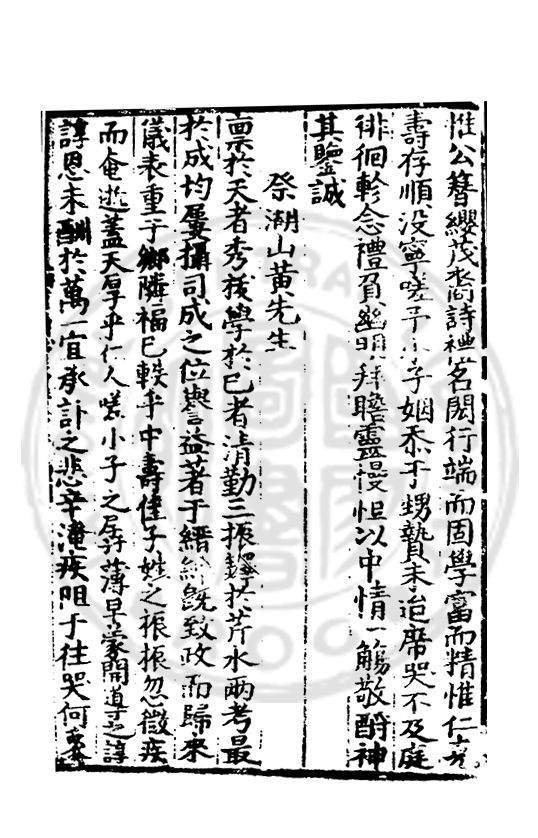 惟公簪纓茂裔詩禮茗閥行端而固學富而精惟仁亦
壽存順没寧嗟予小子姻忝于甥贄未造席哭不及庭
徘徊軫念禮負幽明拜瞻靈幔怛以中情一觴敬酹神
其鑒誠
祭湖山黃先生
禀於天者秀模學於已者清勤三振鐸於芹水兩考最
於成均屢攝司成之位譽益著于縉紳既致政而歸來
儀表重于鄉隣福已軼乎中壽佳子姓之振振忽微疾
而奄逝蓋天厚乎仁人嗟小子之孱薄早蒙開道之諄
諄恩未酬於萬一宜承訃之悲辛淹疾阻于往哭何